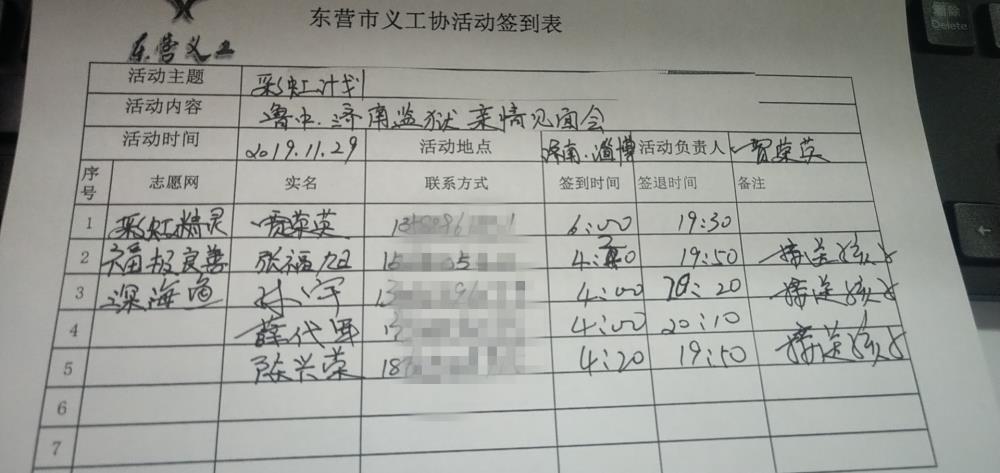 东营市义工协活动签到表
东营义工
活动主题 彩虹计划
活动内容 鲁中.济南监狱亲情见面会
活动时间 2019.11.29 活动地点 济南.淄博 活动负责人 贾荣英
序号 志愿网 实名 联系方式 签到时间 签退时间 备注
1 彩虹精灵 贾荣英 6:00 19:30
2 福报良善 张福旭 15 05 19:50 接送孩子
3 深海鱼 孙宇 13 4:00 20:20 接送孩子
4 薛代军 4:00 20:10
5 陈兴荣 18 4:20 19:50 接送孩子
6
7
删除
Delete